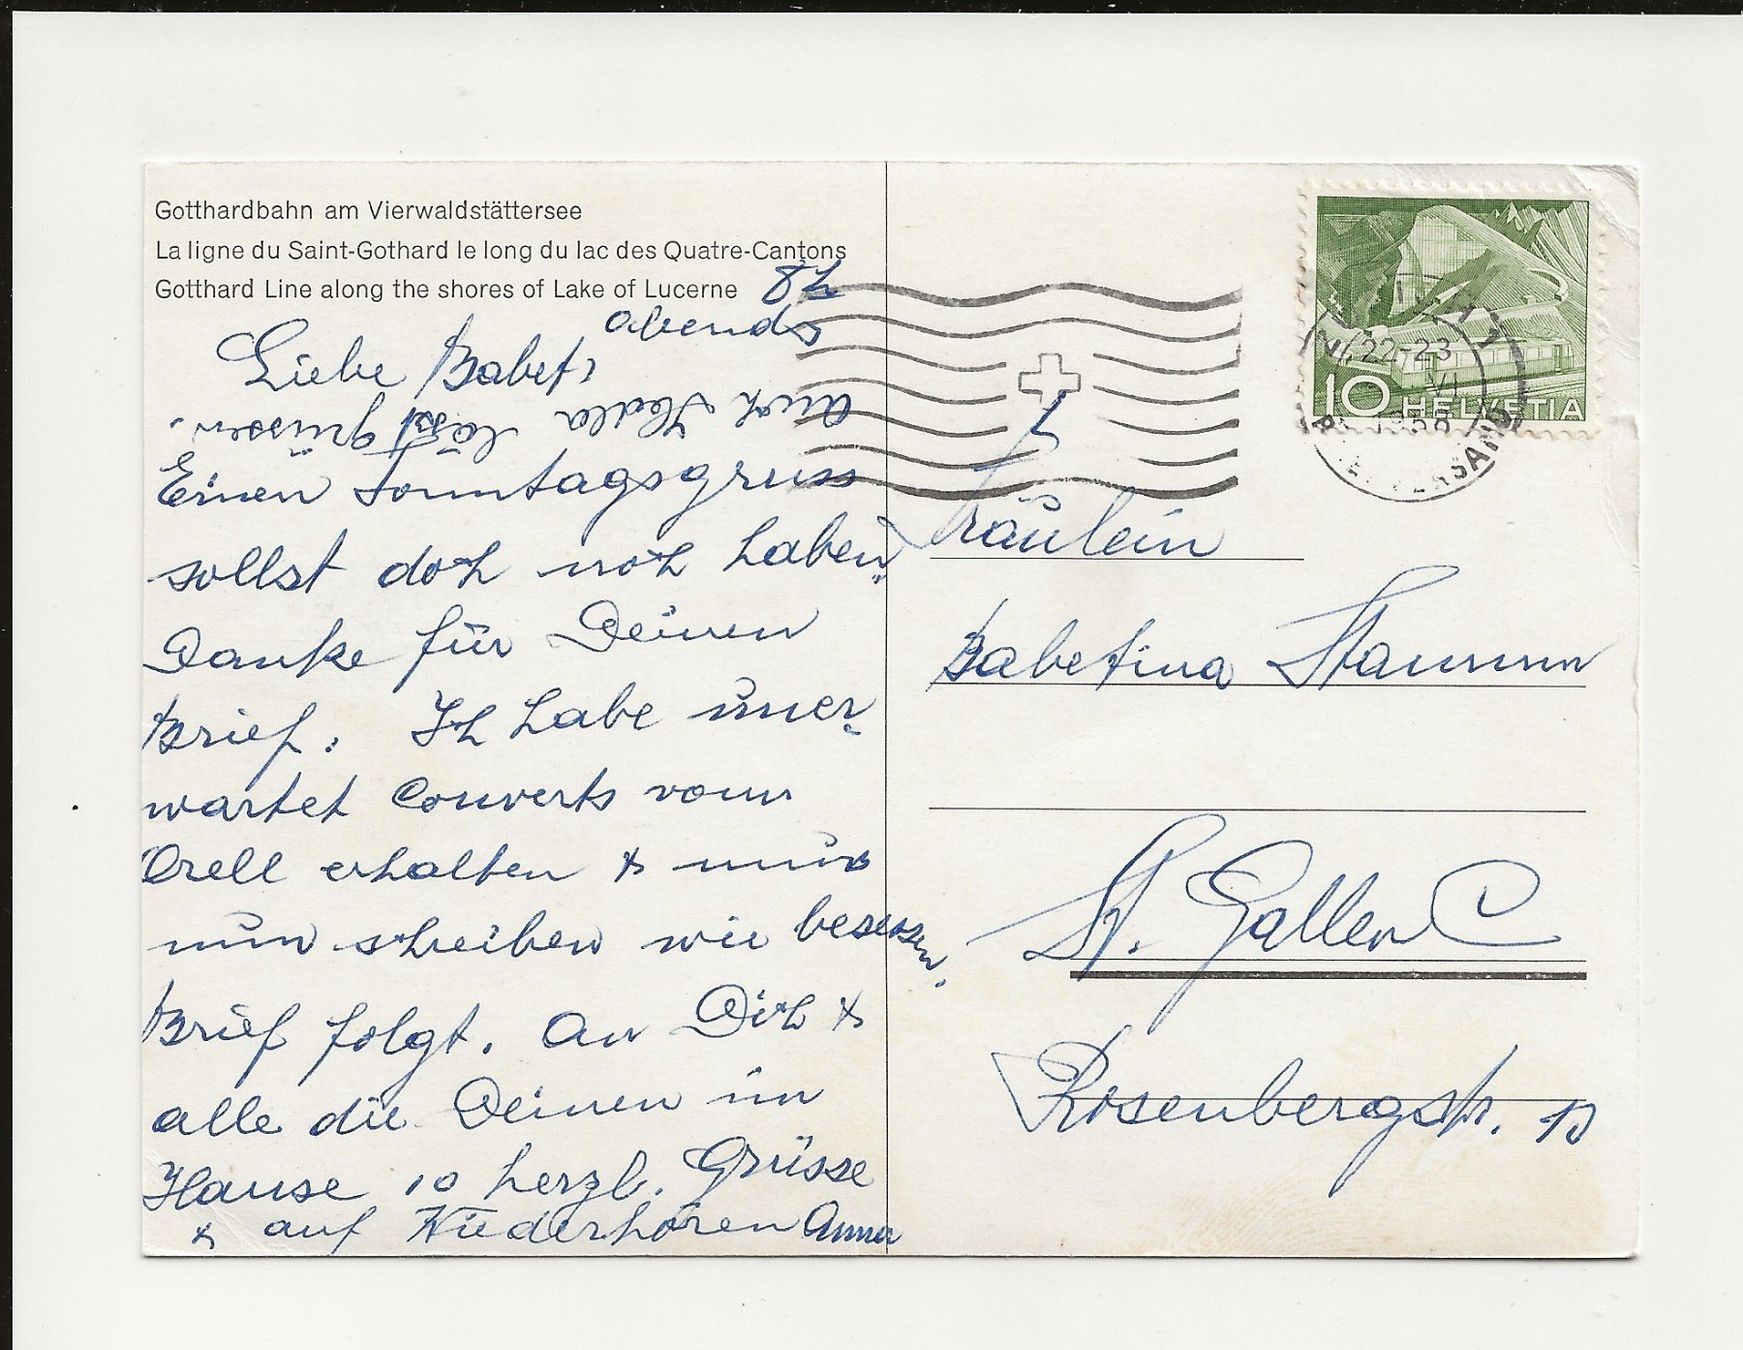 Gotthardbahn am Vierwaldstättersee
La ligne du Saint-Gothard le long du lac des Quatre-Cantons
Gotthard Line along the shores of Lake of Lucerne
8h
abends
Liebe Babet,
auch Hedla lässt grüssen.
Einen Sonntagsgruss
sollst doch noch haben,
Danke für Deinen
Brief. Ich habe uner-
wartet Couverts vom
Orell erhalten & muss
nun schreiben wie besessen.
Brief folgt. An Dich &
alle die Deinen im
Hause 10 herzl. Grüsse
& auf Wiederhören Anna
HELVETIA
10
22-23
VI
BRIEFVERSAND
Fräulein
Babetina Stamm
St. Gallen C
Rosenbergstr. 10